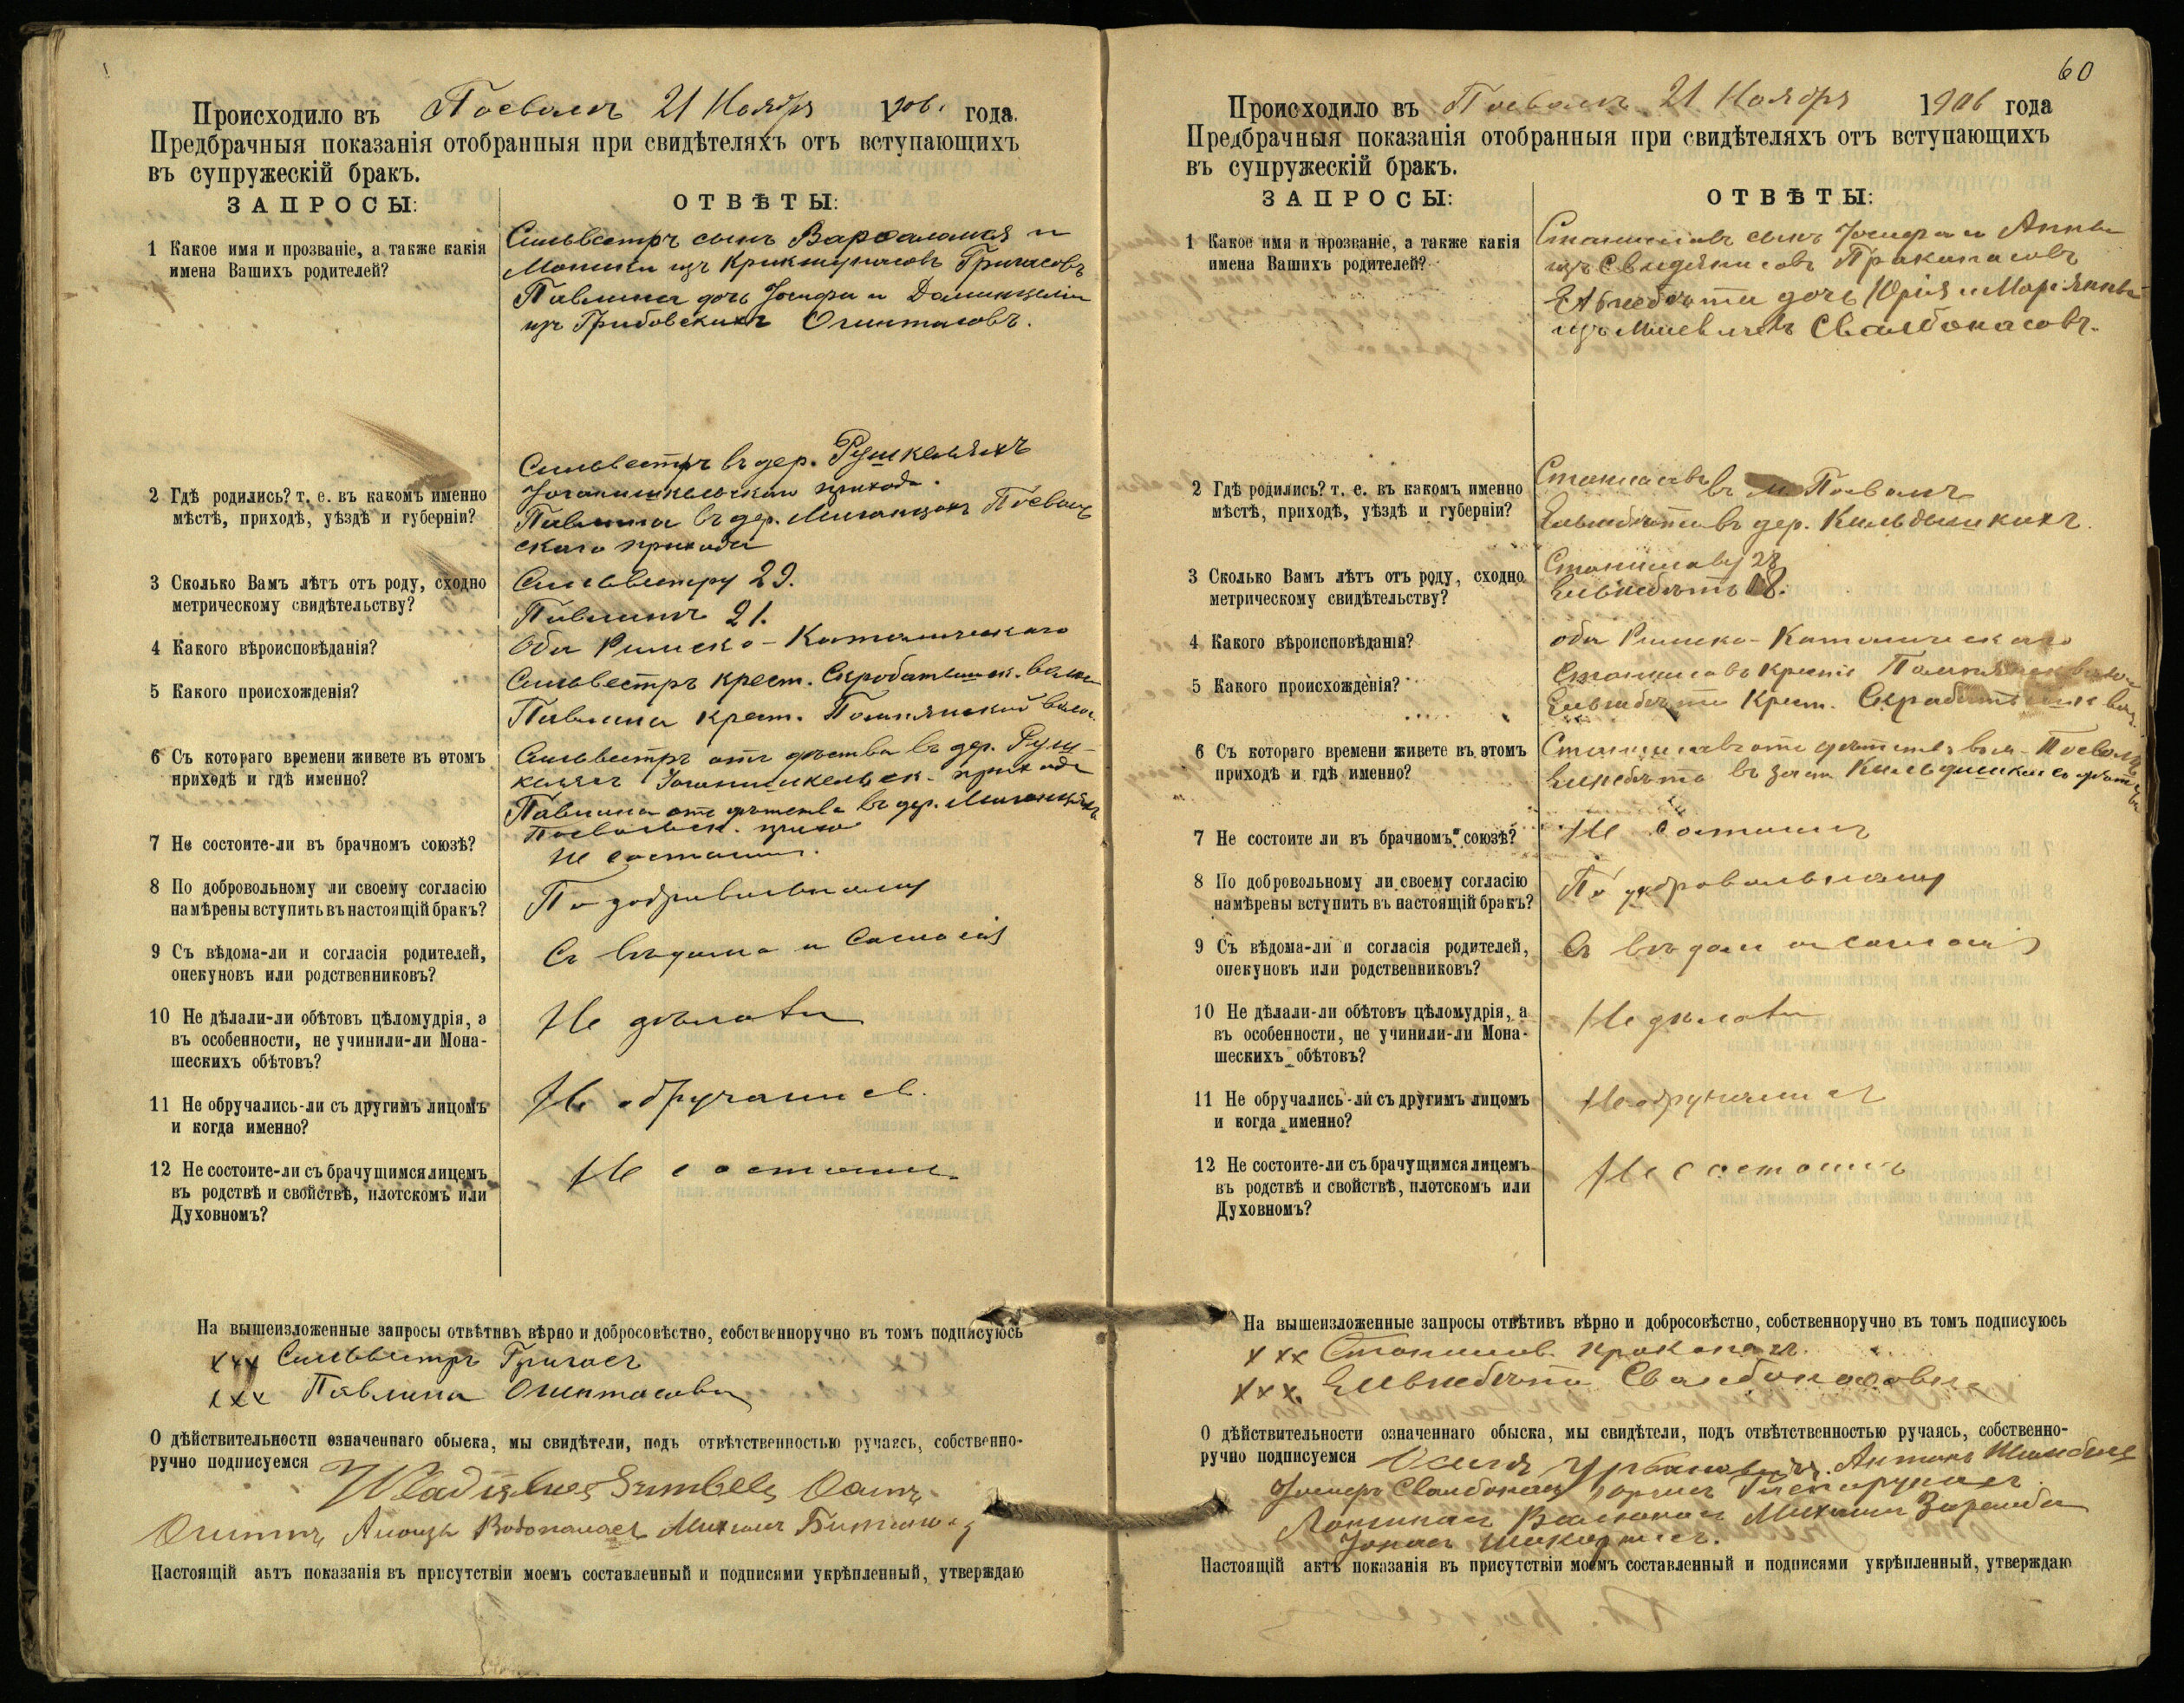 Происходило въ Поеволѣ 21 Ноября 1906. года.
Предбрачныя показанія отобранныя при свидѣтеляхъ отъ вступающихъ
въ супружескій бракъ.
ЗАПРОСЫ: ОТВѢТЫ:
1 Какое имя и прозваніе, а также какія
имена Вашихъ родителей?
Сильвестръ сынъ Варѳаломея и
Моники изъ Крикштунасовъ Григасовъ
Павлина дочь Іосифа и Доминцеліи
изъ Грибовскихъ Огинтасовъ.
2 Гдѣ родились? т. е. въ какомъ именно
мѣстѣ, приходѣ, уѣздѣ и губерніи?
Сильвестръ въ дер. Рушкеляхъ
прихода.
Павлина въ дер. Поеволь
скаго прихода
3 Сколько Вамъ лѣтъ отъ роду, сходно
метрическому свидѣтельству?
Сильвестру 29.
Павлинѣ 21.
4 Какого вѣроисповѣданія?
Оба Римско-Католическаго
5 Какого происхожденія?
Сильвестръ крест. Скроботышск. волос
Павлина крест. Помпянской волос.
6 Съ котораго времени живете въ этомъ
приходѣ и гдѣ именно?
Сильвестръ отъ дѣтства въ дер. Руш-
келяхъ прихода
Павлина отъ дѣтства въ дер.
Поевольск. прихо
7 Не состоите-ли въ брачномъ союзѣ?
Не состоимъ.
8 По добровольному ли своему согласію
намѣрены вступить въ настоящій бракъ?
По добровольному
9 Съ вѣдома-ли и согласія родителей,
опекуновъ или родственниковъ?
Съ вѣдома и согласія
10 Не дѣлали-ли обѣтовъ цѣломудрія, а
въ особенности, не учинили-ли Мона-
шескихъ обѣтовъ?
Не дѣлали
11 Не обручались-ли съ другимъ лицомъ
и когда именно?
Не обручались.
12 Не состоите-ли съ брачущимся лицемъ
въ родствѣ и свойствѣ, плотскомъ или
Духовномъ?
Не состоимъ
На вышеизложенные запросы отвѣтивъ вѣрно и добросовѣстно, собственноручно въ томъ подписуюсь
xxx Сильвестръ Григасъ
xxx Павлина Огинтасовна
О дѣйствительности означеннаго обыска, мы свидѣтели, подъ отвѣтственностью ручаясь, собственно-
ручно подписуемся
Михаилъ
Настоящій актъ показанія въ присутствіи моемъ составленный и подписями укрѣпленный, утверждаю
60
Происходило въ Поеволѣ 21 Ноября 1906 года
Предбрачныя показанія отобранныя при свидѣтеляхъ отъ вступающихъ
въ супружескій бракъ.
ЗАПРОСЫ: ОТВѢТЫ:
1 Какое имя и прозваніе, а также какія
имена Вашихъ родителей?
Станиславъ сынъ Іосифа и Анны
изъ Проканасовъ
Ельжбѣта дочь Юрія и Маріянны
изъ Свалбонасовъ.
2 Гдѣ родились? т. е. въ какомъ именно
мѣстѣ, приходѣ, уѣздѣ и губерніи?
Станиславъ въ м. Поеволѣ
Ельжбѣта въ дер. Кильдишкахъ.
3 Сколько Вамъ лѣтъ отъ роду, сходно
метрическому свидѣтельству?
Станиславу 28
Ельжбѣтѣ 18.
4 Какого вѣроисповѣданія?
оба Римско-Католическаго
5 Какого происхожденія?
Станиславъ крест.
Ельжбѣта крест. Скроботышск вол.
6 Съ котораго времени живете въ этомъ
приходѣ и гдѣ именно?
Станиславъ отъ дѣтства въ м. Поеволѣ
Ельжбѣта въ
7 Не состоите ли въ брачномъ союзѣ?
Не состоимъ
8 По добровольному ли своему согласію
намѣрены вступить въ настоящій бракъ?
По добровольному
9 Съ вѣдома-ли и согласія родителей,
опекуновъ или родственниковъ?
Съ вѣдома и согласія
10 Не дѣлали-ли обѣтовъ цѣломудрія, а
въ особенности, не учинили-ли Мона-
шескихъ обѣтовъ?
Не дѣлали
11 Не обручались-ли съ другимъ лицомъ
и когда именно?
Не обручались
12 Не состоите-ли съ брачущимся лицемъ
въ родствѣ и свойствѣ, плотскомъ или
Духовномъ?
Не состоимъ
На вышеизложенные запросы отвѣтивъ вѣрно и добросовѣстно, собственноручно въ томъ подписуюсь
xxx Станиславъ Проканасъ
xxx Ельжбѣта Свалбонасовна
О дѣйствительности означеннаго обыска, мы свидѣтели, подъ отвѣтственностью ручаясь, собственно-
ручно подписуемся Осипъ Урбановичъ. Антонъ
Іосифъ Свалбонасъ
Михаилъ Заремба
Настоящій актъ показанія въ присутствіи моемъ составленный и подписями укрѣпленный, утверждаю